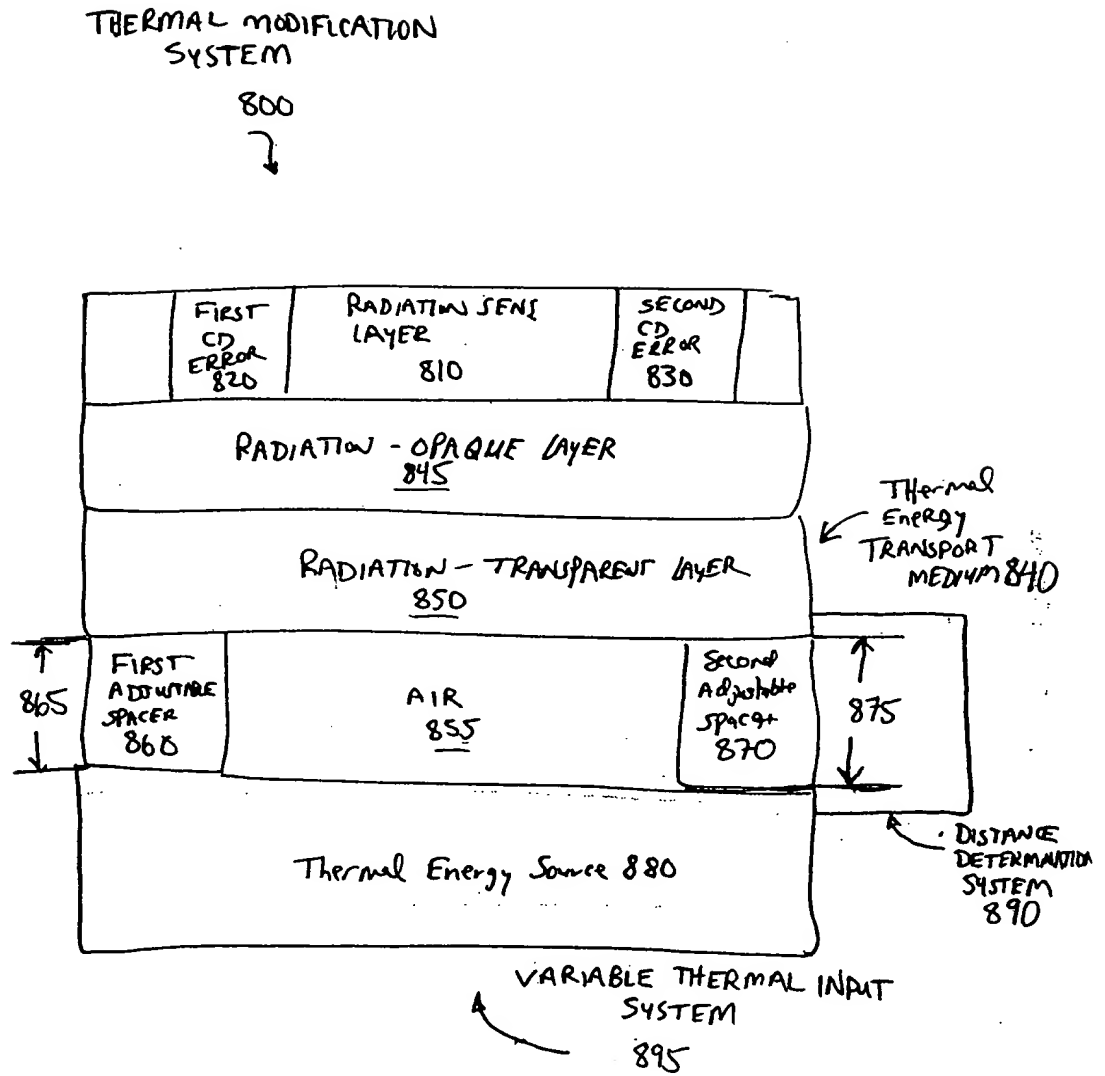 THERMAL MODIFICATION
SYSTEM
800
FIRST
CD
ERROR
820
RADIATION SENS
LAYER
810
SECOND
CD
ERROR
830
RADIATION - OPAQUE LAYER
845
THermal
EneRGY
TRANSPORT
MEDIUM 840
RADIATION - TRANSPARENT LAYER
850
865
FIRST
ADJUSTABLE
SPACER
860
AIR
855
Second
Adjustable
spacer
870
875
Thermal Energy Source 880
DISTANCE
DETERMINATION
SYSTEM
890
VARIABLE THERMAL INPUT
SYSTEM
895